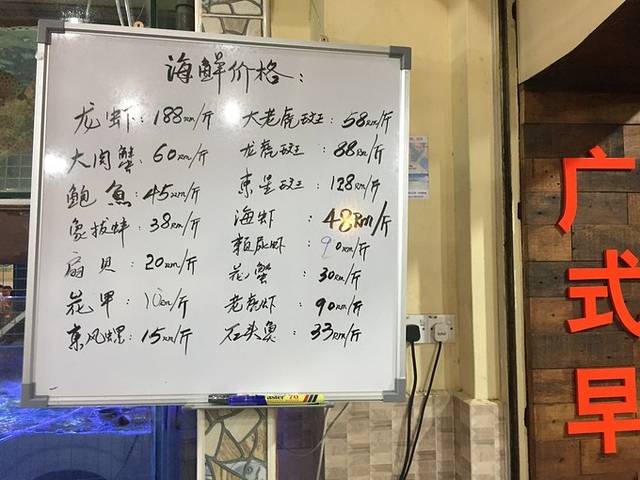 海鲜价格:
龙虾: 188RM/斤
大肉蟹: 60RM/斤
鲍魚: 45RM/斤
象拔蚌: 38RM/斤
扇贝: 20RM/斤
花甲: 10RM/斤
東风螺: 15RM/斤
大老虎斑: 58RM/斤
龙虎斑: 88RM/斤
東星斑: 128RM/斤
海虾: 48RM/斤
賴尿虾: 90RM/斤
花蟹: 30RM/斤
老虎虾: 90RM/斤
石头魚: 33RM/斤
master 70
广
式
早